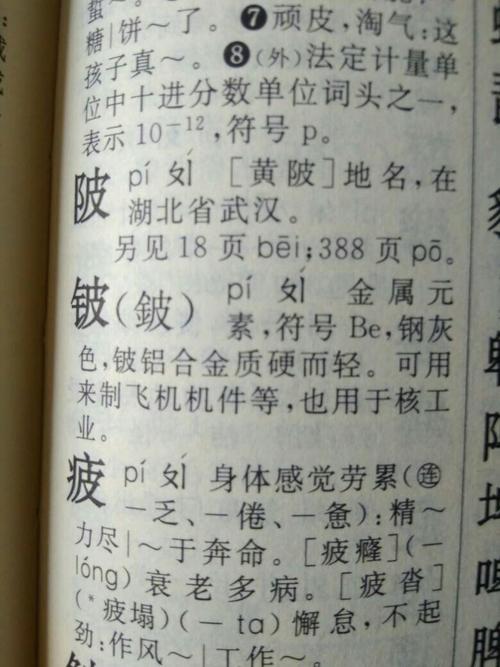 蜇～。
糖|饼～了。❼顽皮,淘气:这
孩子真～。❽(外)法定计量单
位中十进分数单位词头之一,
表示10⁻¹²,符号p。
陂 pí ㄆㄧˊ [黄陂]地名,在
湖北省武汉。
另见18页bēi;388页pō。
铍(鈹) pí ㄆㄧˊ 金属元
素,符号Be,钢灰
色,铍铝合金质硬而轻。可用
来制飞机机件等,也用于核工
业。
疲 pí ㄆㄧˊ 身体感觉劳累(㊤连
一乏、一倦、一惫):精～
力尽|～于奔命。[疲癃](一
lóng)衰老多病。[疲沓]
(*疲塌)(一ta)懈怠,不起
劲:作风～|工作～。